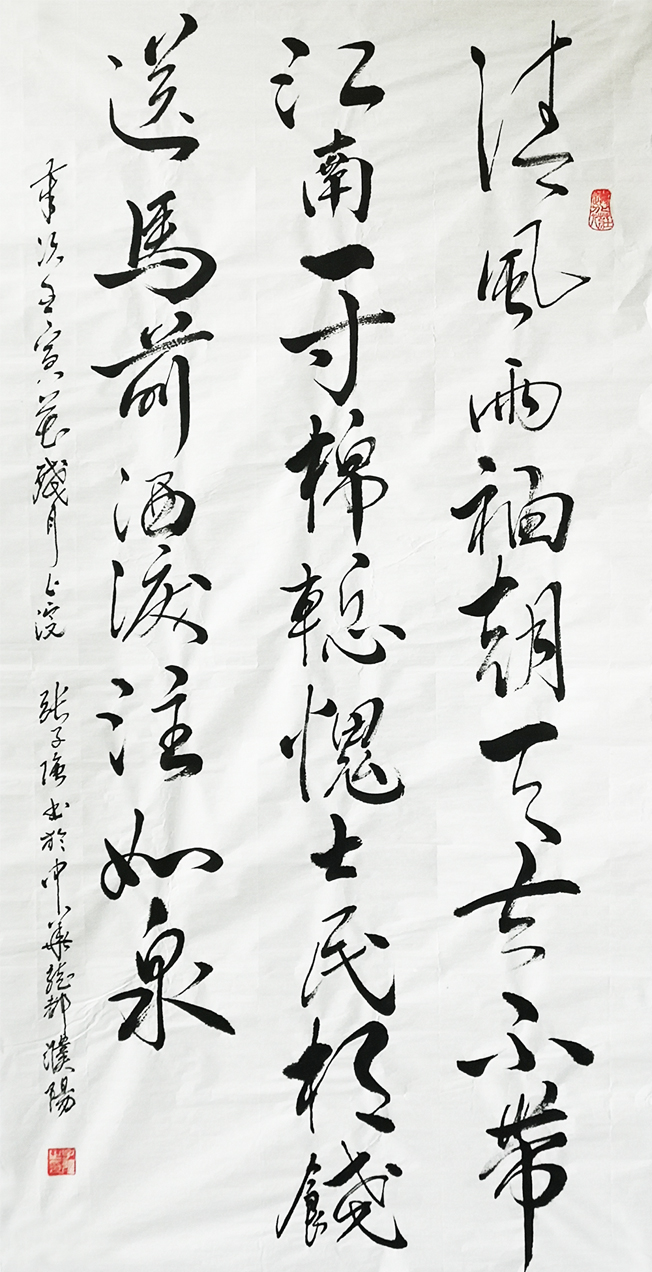 清風兩袖朝天去不帶
江南一寸棉慙愧士民相餞
送馬前洒淚注如泉
歲次壬寅花殘月上浣 張子 書於中華龍都濮陽